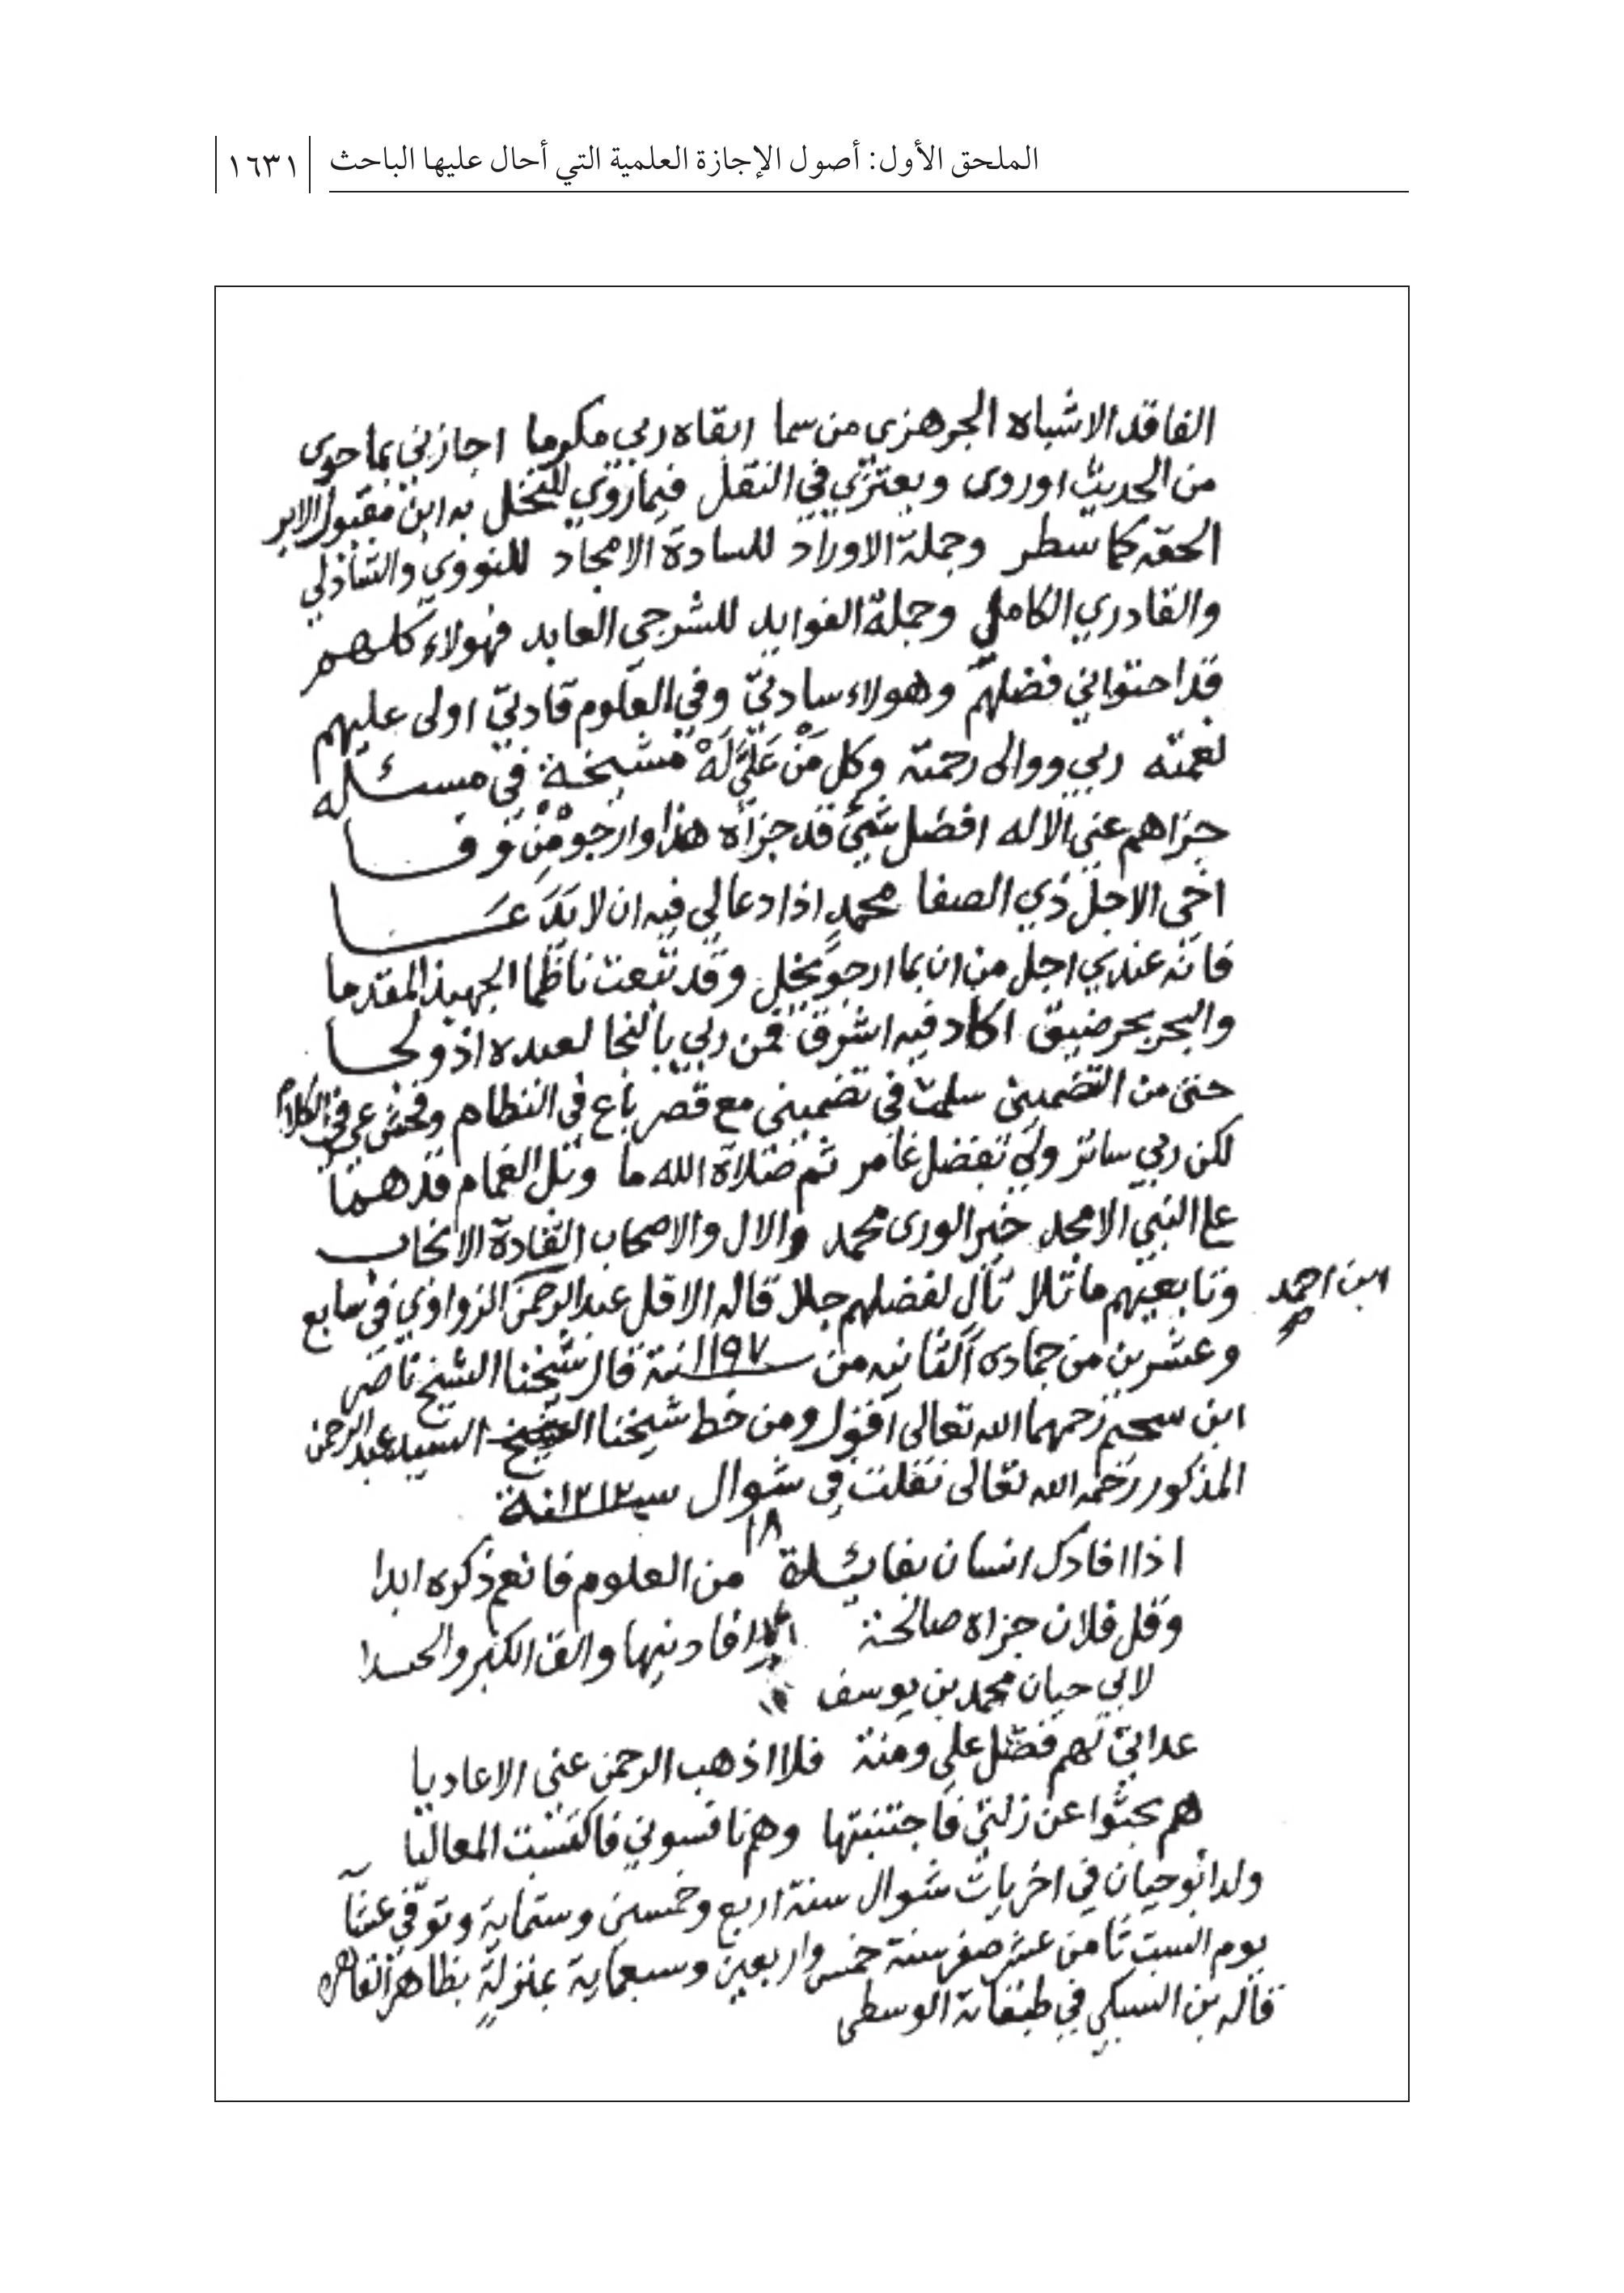 الملحق الأول: أصول الإجازة العلمية التي أحال عليها الباحث
١٦٣١
الفاقد الاشباه الجرهزي من سما ابقاه ربي مكرما اجازني بما حوى
من الحديث اوروى ويعتزي في النقل فيما روي للنخل به ابن مقبول الابر
الحقه كما سطر وجملة الاوراد للسادة الامجاد للنووي والشاذلي
والقادري الكاملي وجملة الفوايد للشرجي العابد فهولاء كلهم
قد احتواني فضلهم وهولاء سادتي وفي العلوم قادتي اولى عليهم
نعمته ربي ووالى رحمته وكل من علي له مشيخة في مسئله
جزاهم عني الاله افضل شيئ قد جزاه هذا وارجو من وفا
اخي الاجل ذي الصفا محمد اذا دعا لي فيه ان لا يدعنا
فانه عندي اجل من ان بما ارجو يخل وقد تبعت ناظما الجهبذ المقدما
والبحر بحر ضيق اكاد فيه اشرق فمن ربي بالنجا لعبده اذ ولجا
حتى من التضمين سلمت في تضميني مع قصر باع في النظام وفحش عي في الكلام
لكن ربي ساتر ولي تفضل غامر ثم صلاة الله ما وبل الغمام قد هما
على النبي الامجد خير الورى محمد والال والاصحاب القادة الانجاب
وتابعيهم ما تلا تال لفضلهم جلا قاله الاقل عبد الرحمن الزواوي في سابع
ابن احمد صح
وعشرين من جماده الثانيه من سنة ١١٩٧ قال شيخنا الشيخ ناصر
ابن سحيم رحمهما الله تعالى اقول ومن خط شيخنا الشيخ السيد عبد الرحمن
المذكور رحمه الله تعالى نقلت في ١٨ شوال سنة ١٢١٢
اذا افادك انسان بفائدة من العلوم فانعم ذكره ابدا
وقل فلان جزاه صالحة افادنيها والق الكبر والحسدا
لابي حيان محمد بن يوسف
عداتي لهم فضل علي ومنة فلا اذهب الرحمن عني الاعاديا
هم بحثوا عن زلتي فاجتنبتها وهم نافسوني فاكتسبت المعاليا
ولد ابو حيان في اخريات شوال سنة اربع وخمسين وستماية وتوفي عشيا
يوم السبت ثامن عشر صفر سنة خمس واربعين وسبعماية بمنزله بظاهر القاهره
قاله بن السبكي في طبقاته الوسطى